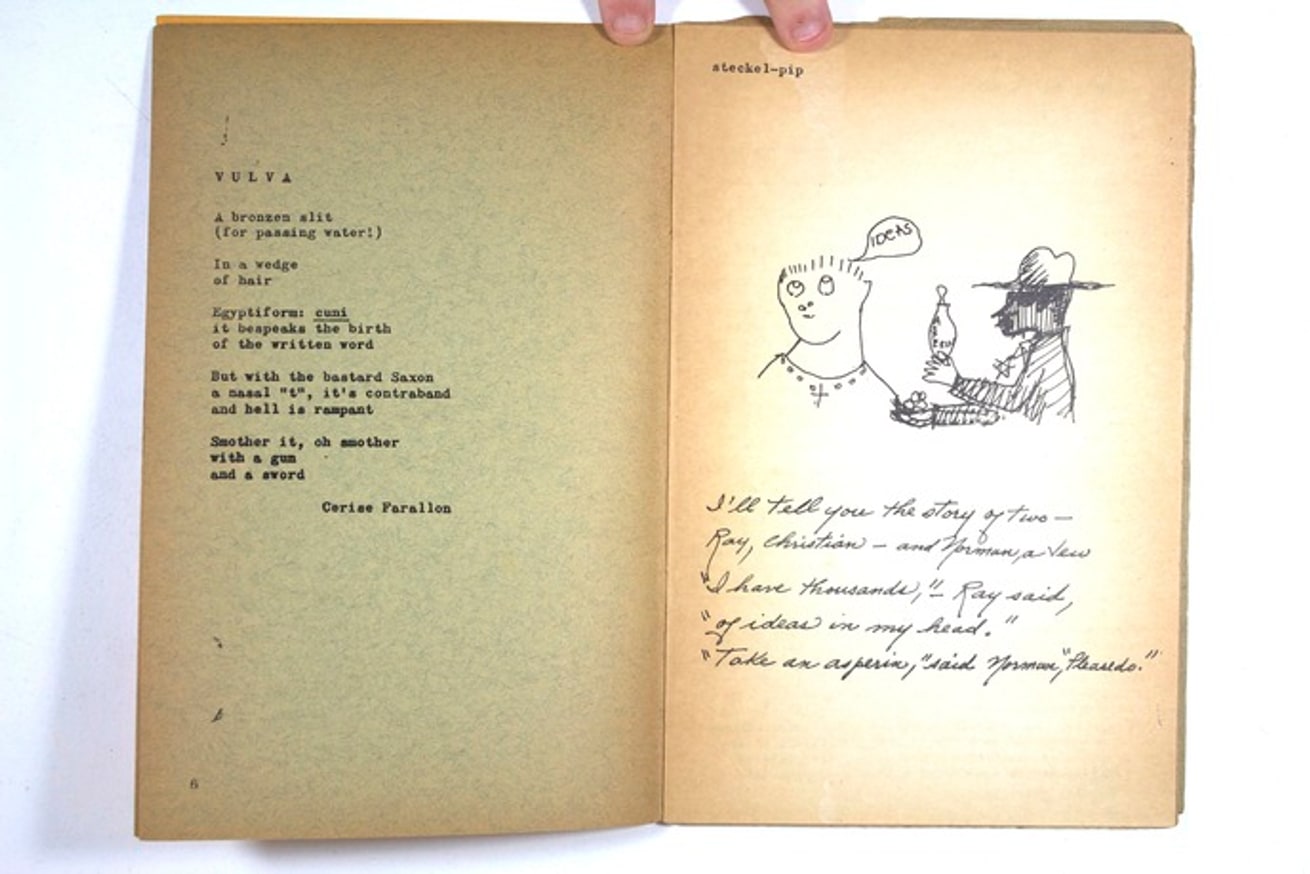 V U L V A
A bronzen slit
(for passing water!)
In a wedge
of hair
Egyptiform: cuni
it bespeaks the birth
of the written word
But with the bastard Saxon
a nasal "t", it's contraband
and hell is rampant
Smother it, oh smother
with a gun
and a sword
Cerise Farallon
6
steckel-pip
IDEAS
I'll tell you the story of two—
Ray, Christian — and Norman, a Jew
"I have thousands," — Ray said,
"of ideas in my head."
"Take an asperin," said Norman, "Please do."